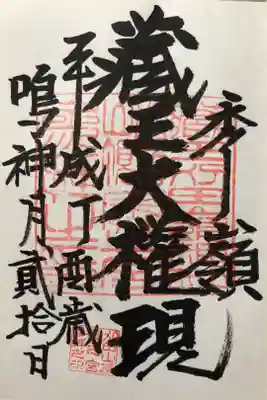 秀嶺
蔵王大権現
平成丁酉歳
鳴神月貳拾日